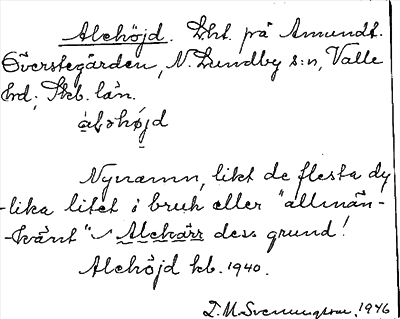 Alehöjd. Lht. på Amundt.
Överstegården, N. Lundby s:n, Valle
hrd; Skb. län.
àləhøjd
Nynamn, likt de flesta dy-
lika litet i bruk eller "allmän-
känt" Alekärr dess grund!
Alehöjd kb. 1940.
1946